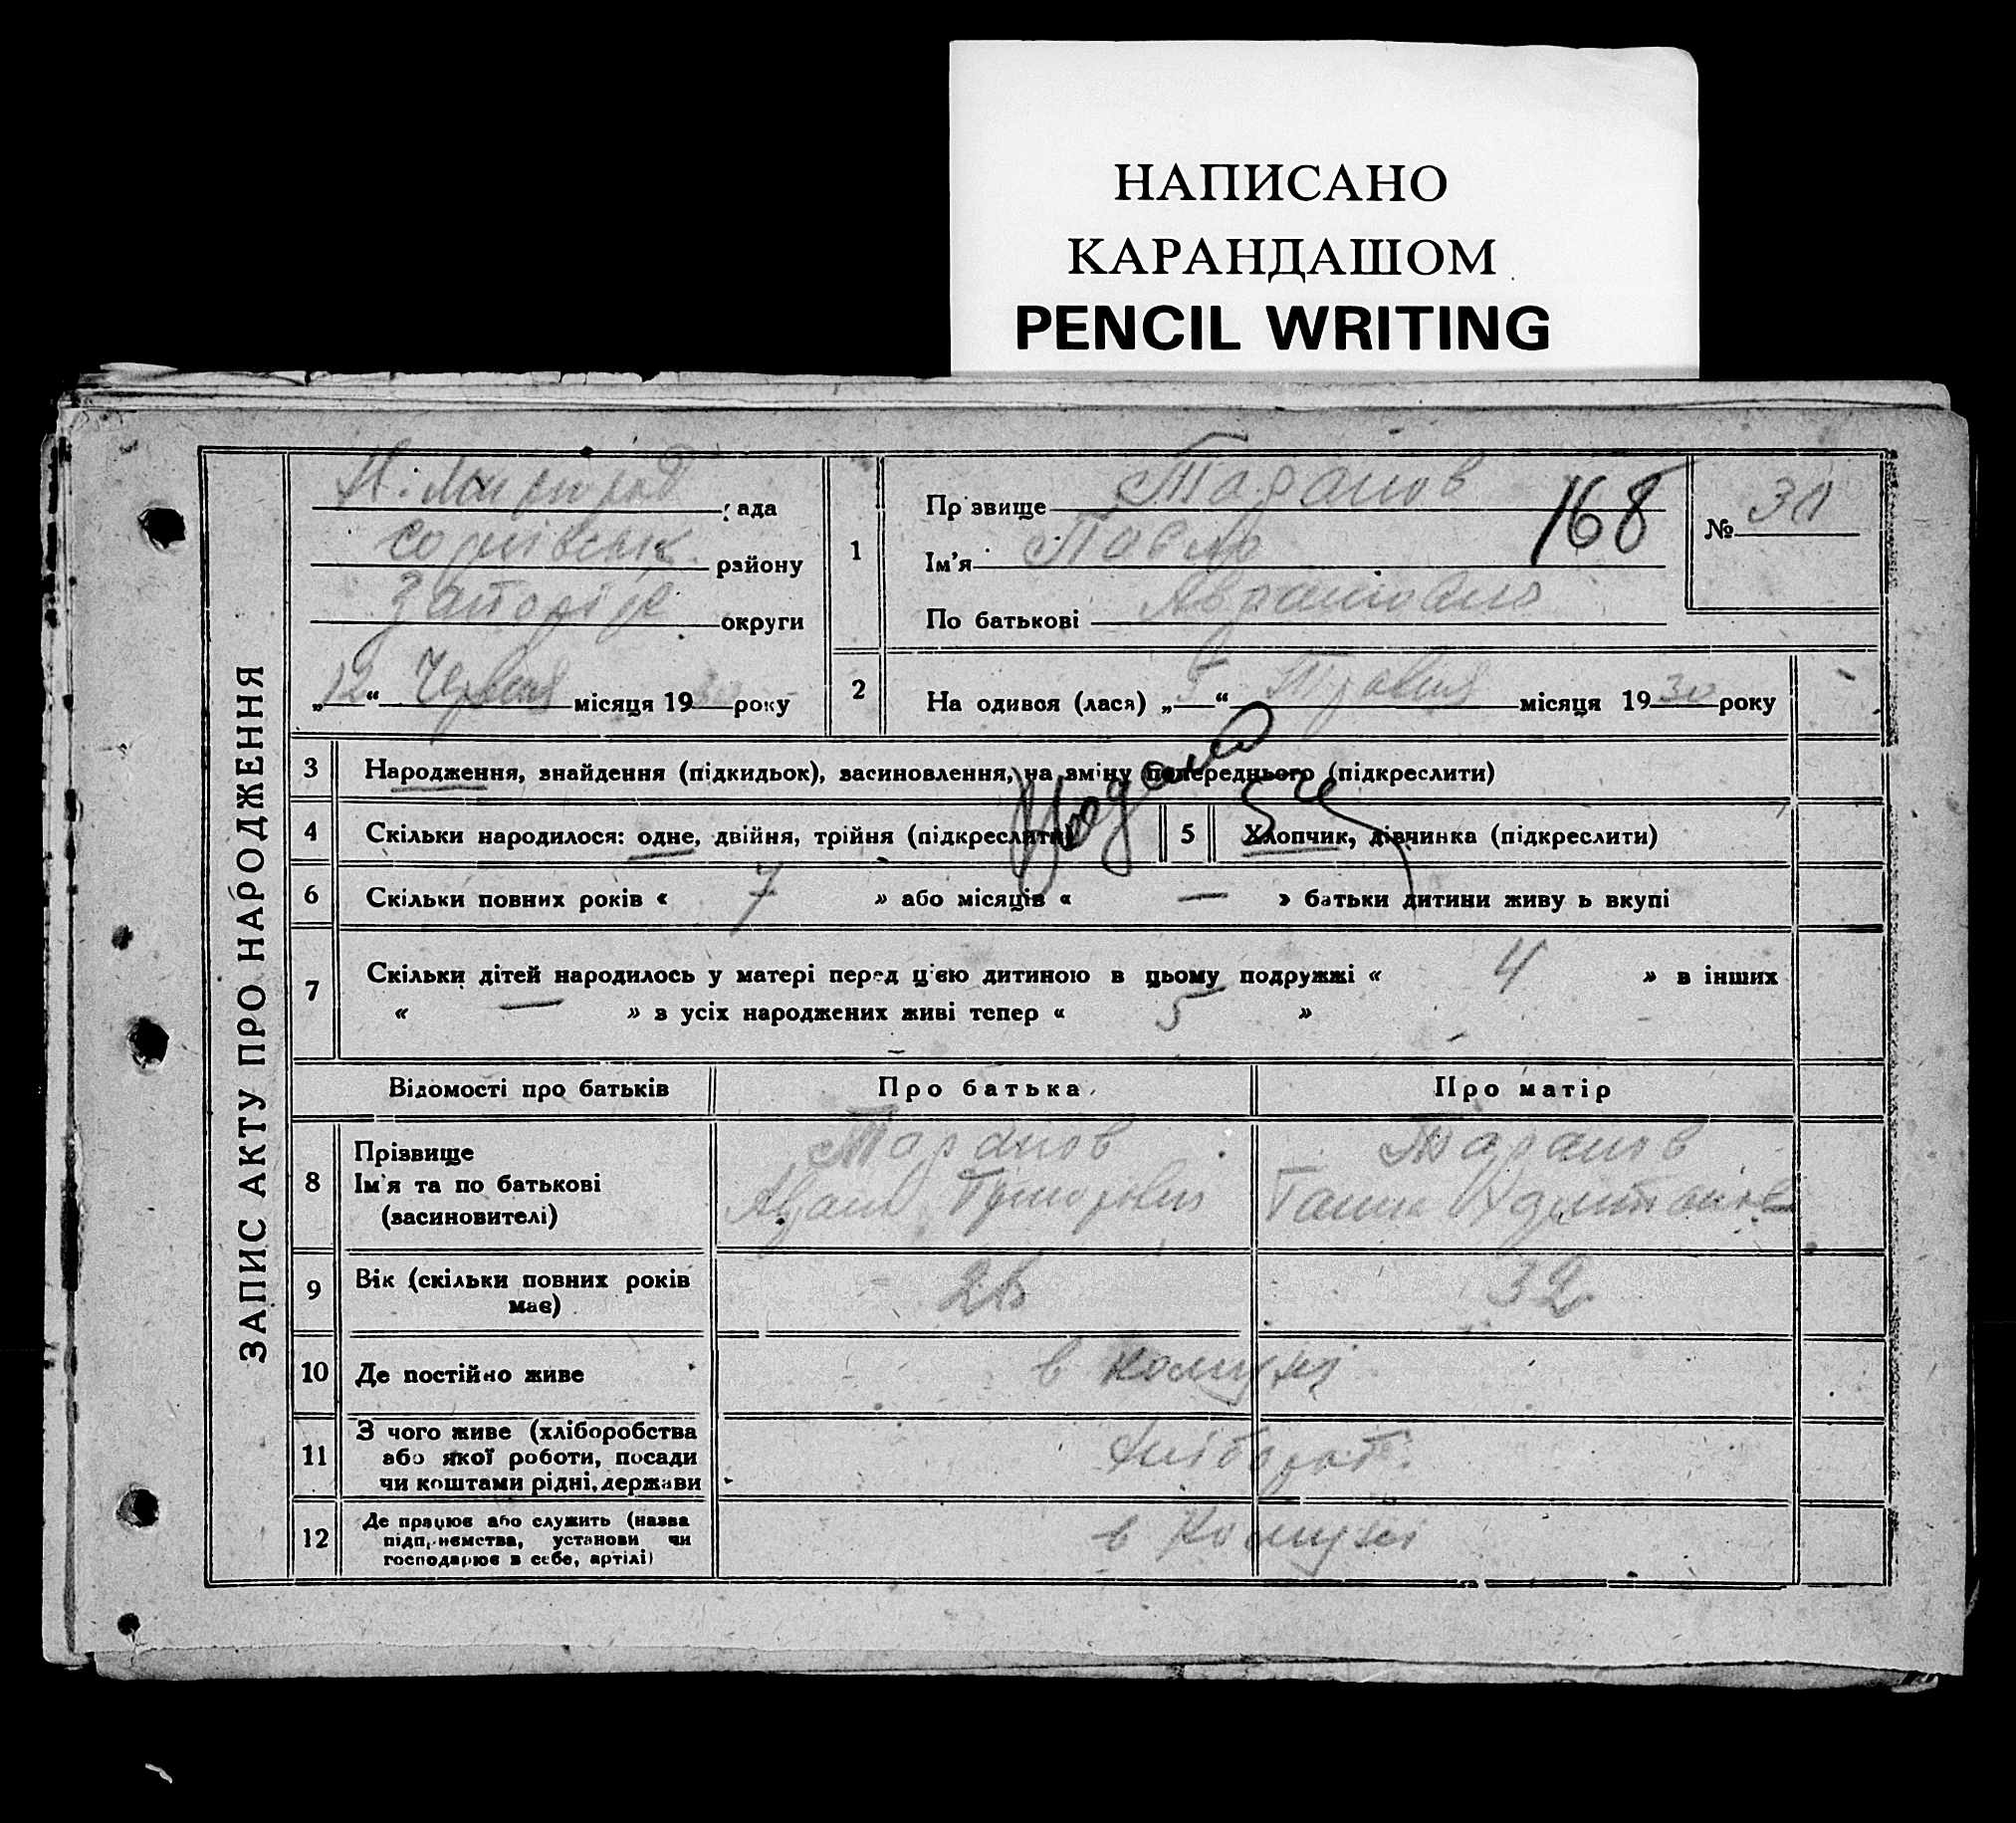 НАПИСАНО
КАРАНДАШОМ
PENCIL WRITING
ЗАПИС АКТУ ПРО НАРОДЖЕННЯ
рада
району
округи
„12“ Червня місяця 1930 року
1
Прізвище Таранов
Ім'я Павло
По батькові
168
№ 30
2
На одився (лася) „5“ Травня місяця 1930 року
3 Народження, знайдення (підкидьок), засиновлення, на зміну попереднього (підкреслити)
4 Скільки народилося: одне, двійня, трійня (підкреслити)
5 Хлопчик, дівчинка (підкреслити)
6 Скільки повних років « 7 » або місяців « — » батьки дитини живу ь вкупі
7 Скільки дітей народилось у матері перед цією дитиною в цьому подружжі « 4 » в інших
« — » з усіх народжених живі тепер « 5 »
Відомості про батьків Про батька Про матір
8
Прізвище
Ім'я та по батькові
(засиновителі)
Таранов
Таранов
Ганна
9
Вік (скільки повних років
має)
26
32
10 Де постійно живе
в комуні
11
З чого живе (хліборобства
або якої роботи, посади
чи коштами рідні, держави
хлібороб.
12
Де працює або служить (назва
підприємства, установи чи
господарює в себе, артілі)
в Комуні